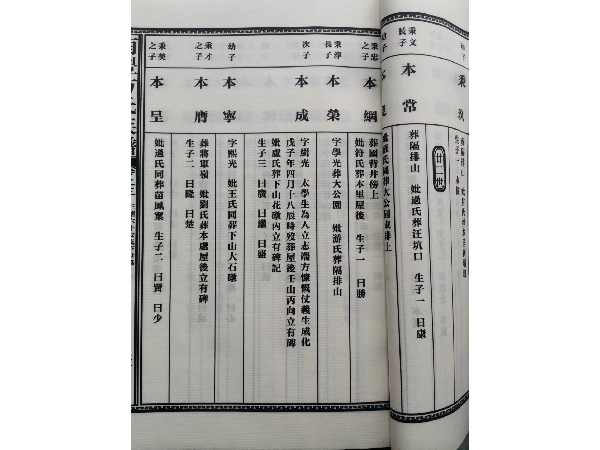 幼子
秉
葬隔排山
生子一
廿二世
秉文長子
本常
葬隔排山 妣過氏葬汪坑口 生子一 曰康
幼子
妣過氏同葬大公園東排上
秉忠之子
本綱
葬園背井傍上
妣符氏葬本里屋後 生子一 曰勝
秉淳長子
本榮
字學光葬大公園 妣游氏葬隔排山
次子
本成
字緝光 太學生為人立志端方慷慨仗義生成化
戊子年四月十八辰時歿葬屋後壬山丙向立有碑
妣盧氏葬下山花墩內立有碑記
生子三 曰廣 曰瀛 曰盛
幼子
本寧
字熙光 妣王氏同葬下山大石墩
秉才之子
本膺
葬將軍嶺 妣劉氏葬本處屋後立有碑
生子二 曰隆 曰楚
秉英之子
本呈
妣過氏同葬苗鳳窠 生子二 曰賢 曰少